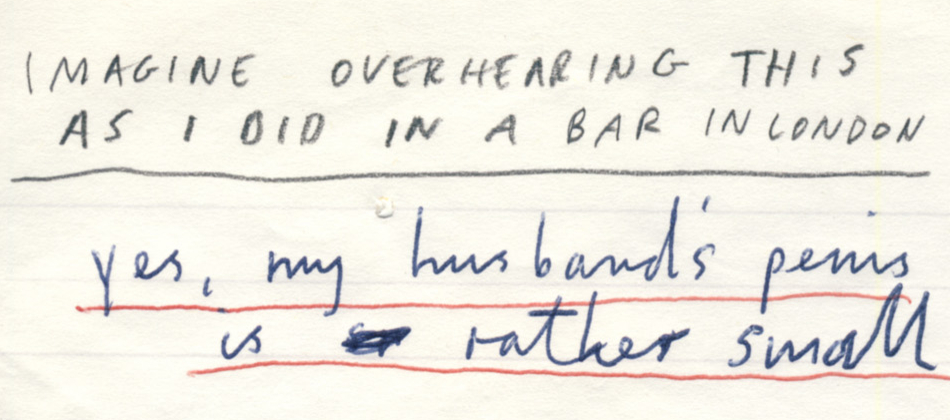 IMAGINE OVERHEARING THIS
AS I DID IN A BAR IN LONDON
yes, my husband's penis
is rather small